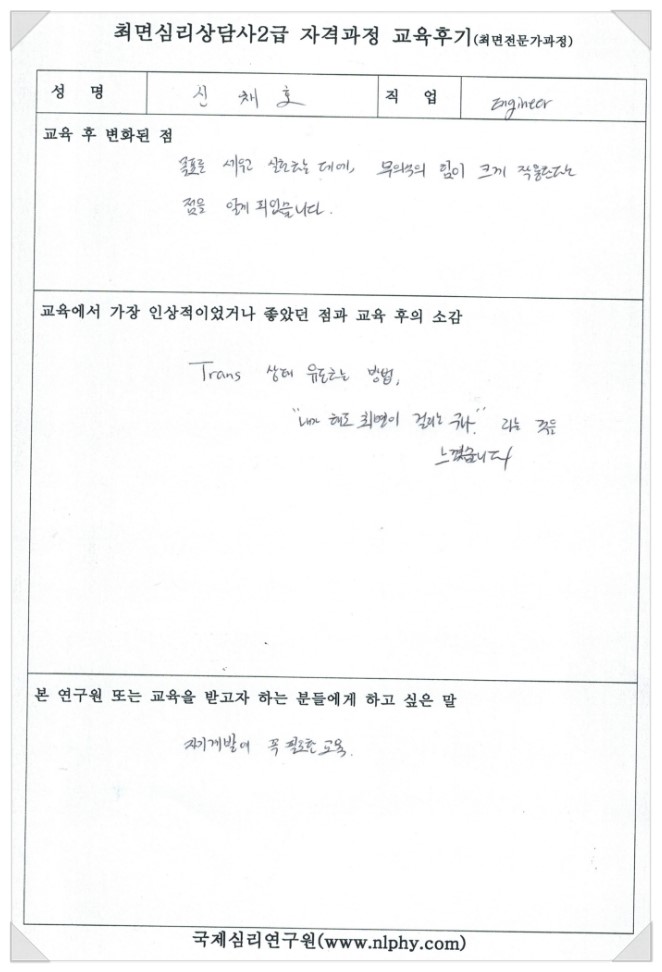 최면심리상담사2급 자격과정 교육후기(최면전문가과정)
성 명 신 채 호 직 업 Engineer
교육 후 변화된 점
목표를 세우고 실천하는 데에, 무의식의 힘이 크게 작용한다는
점을 알게 되었습니다.
교육에서 가장 인상적이었거나 좋았던 점과 교육 후의 소감
Trans 상태 유도하는 방법,
"내가 해도 최면이 걸리는 구나." 라는 것을
느꼈습니다
본 연구원 또는 교육을 받고자 하는 분들에게 하고 싶은 말
자기개발에 꼭 필요한 교육.
국제심리연구원(www.nlphy.com)